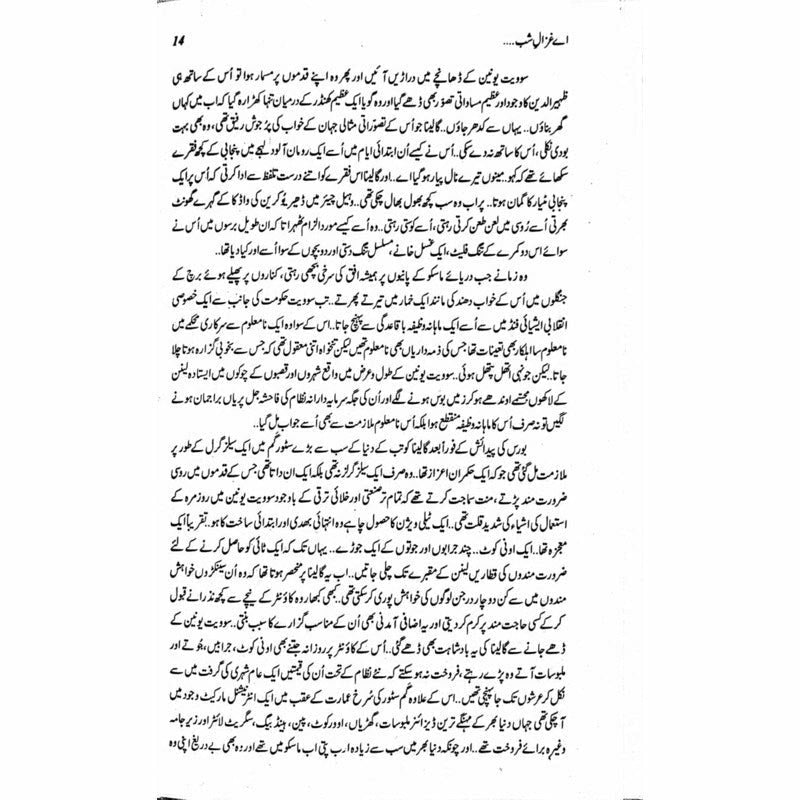 اے غزالِ شب.... 14
سوویت یونین کے ڈھانچے میں دراڑیں آئیں اور پھر وہ اپنے قدموں پر مسمار ہوا تو اُس کے ساتھ ہی
ظہیر الدین کا وجود اور عظیم مساواتی تصوّر بھی ڈھے گیا اور وہ گویا ایک عظیم کھنڈر کے درمیان تنہا کھڑا رہ گیا کہ اب میں کہاں
گھر بناؤں.. یہاں سے کدھر جاؤں.. گالینا جو اُس کے تصوّراتی مثالی جہان کے خواب کی پُرجوش رفیق تھی، وہ بھی بہت
بودی نکلی، اُس کا ساتھ نہ دے سکی.. اُس نے کیسے اُن ابتدائی ایام میں اُسے ایک رومان آلود لہجے میں پنجابی کے کچھ فقرے
سکھائے تھے کہ کہو.. مینوں تیرے نال پیار ہو گیا اے.. اور گالینا اس فقرے کو اتنے درست تلفظ سے ادا کرتی کہ اُس پر ایک
پنجابی مٹیار کا گمان ہوتا.. پر اب وہ سب کچھ بھول بھال چکی تھی.. وہیل چیئر میں ڈھیر یوکرین کی واڈکا کے گہرے گھونٹ
بھرتی اُسے رُوسی میں لعن طعن کرتی رہتی، اُسے کوستی رہتی.. وہ اُسے کیسے موردِ الزام ٹھہراتا کہ ان طویل برسوں میں اُس نے
سوائے اس دو کمرے کے تنگ فلیٹ، ایک غسل خانے، مسلسل تنگ دستی اور دو بچوں کے سوا اُسے اور کیا دیا تھا..
وہ زمانے جب دریائے ماسکو کے پانیوں پر ہمیشہ افق کی سرخی بچھی رہتی، کناروں پر پھیلے ہوئے برچ کے
جنگلوں میں اُس کے خواب دھند کی مانند ایک خمار میں تیرتے پھرتے.. تب سوویت حکومت کی جانب سے ایک خصوصی
انقلابی ایشیائی فنڈ میں سے اُسے ایک ماہانہ وظیفہ باقاعدگی سے پہنچ جاتا.. اس کے سوا وہ ایک نامعلوم سے سرکاری محکمے میں
نامعلوم سا اہلکار بھی تعینات تھا جس کی ذمہ داریاں بھی نامعلوم تھیں لیکن تنخواہ اتنی معقول تھی کہ جس سے بخوبی گزارہ ہوتا چلا
جاتا.. لیکن جونہی اتھل پتھل ہوئی.. سوویت یونین کے طول و عرض میں واقع شہروں اور قصبوں کے چوکوں میں ایستادہ لینن
کے لاکھوں مجسّمے اوندھے ہو کر زمیں بوس ہونے لگے اور اُن کی جگہ سرمایہ دارانہ نظام کی فاحشہ جل پریاں براجمان ہونے
لگیں تو نہ صرف اُس کا ماہانہ وظیفہ منقطع ہوا بلکہ اُس نامعلوم ملازمت سے بھی اُسے جواب مل گیا..
بورس کی پیدائش کے فوراً بعد گالینا کو تب کے دنیا کے سب سے بڑے سٹور گم میں ایک سیلز گرل کے طور پر
ملازمت مل گئی تھی جو کہ ایک حکمران اعزاز تھا.. وہ صرف ایک سیلز گرل نہ تھی بلکہ ایک ان داتا تھی جس کے قدموں میں روسی
ضرورت مند پڑتے، منت سماجت کرتے تھے کہ تمام تر صنعتی اور خلائی ترقی کے باوجود سوویت یونین میں روزمرہ کے
استعمال کی اشیاء کی شدید قلت تھی.. ایک ٹیلی ویژن کا حصول چاہے وہ انتہائی بھدی اور ابتدائی ساخت کا ہو.. تقریباً ایک
معجزہ تھا.. ایک اونی کوٹ.. چند جرابوں اور جوتوں کے ایک جوڑے.. یہاں تک کہ ایک ٹائی کو حاصل کرنے کے لئے
ضرورت مندوں کی قطاریں لینن کے مقبرے تک چلی جاتیں.. اب یہ گالینا پر منحصر ہوتا تھا کہ وہ اُن سینکڑوں خواہش
مندوں میں سے کن دو چار درجن لوگوں کی خواہش پوری کر سکتی تھی.. کبھی کبھار وہ کاؤنٹر کے نیچے سے کچھ نذرانے قبول
کر کے کسی حاجت مند پر کرم کر دیتی اور یہ اضافی آمدنی بھی اُن کے مناسب گزارے کا سبب بنتی.. سوویت یونین کے
ڈھے جانے سے گالینا کی یہ بادشاہت بھی ڈھے گئی.. اُس کے کاؤنٹر پر روزانہ جتنے بھی اونی کوٹ، جرابیں، جُوتے اور
ملبوسات آتے وہ پڑے رہتے، فروخت نہ ہو سکتے کہ نئے نظام کے تحت اُن کی قیمتیں ایک عام شہری کی گرفت میں سے
نکل کر عرشوں تک جا پہنچی تھیں.. اس کے علاوہ گم سٹور کی سُرخ عمارت کے عقب میں ایک انٹرنیشنل مارکیٹ وجود میں
آ چکی تھی جہاں دنیا بھر کے مہنگے ترین ڈیزائنر ملبوسات، گھڑیاں، اوورکوٹ، پین، ہینڈ بیگ، سگریٹ لائٹر اور زیر جامہ
وغیرہ برائے فروخت تھے.. اور چونکہ دنیا بھر میں سب سے زیادہ ارب پتی اب ماسکو میں تھے اور وہ بھی بے دریغ اپنی وہ